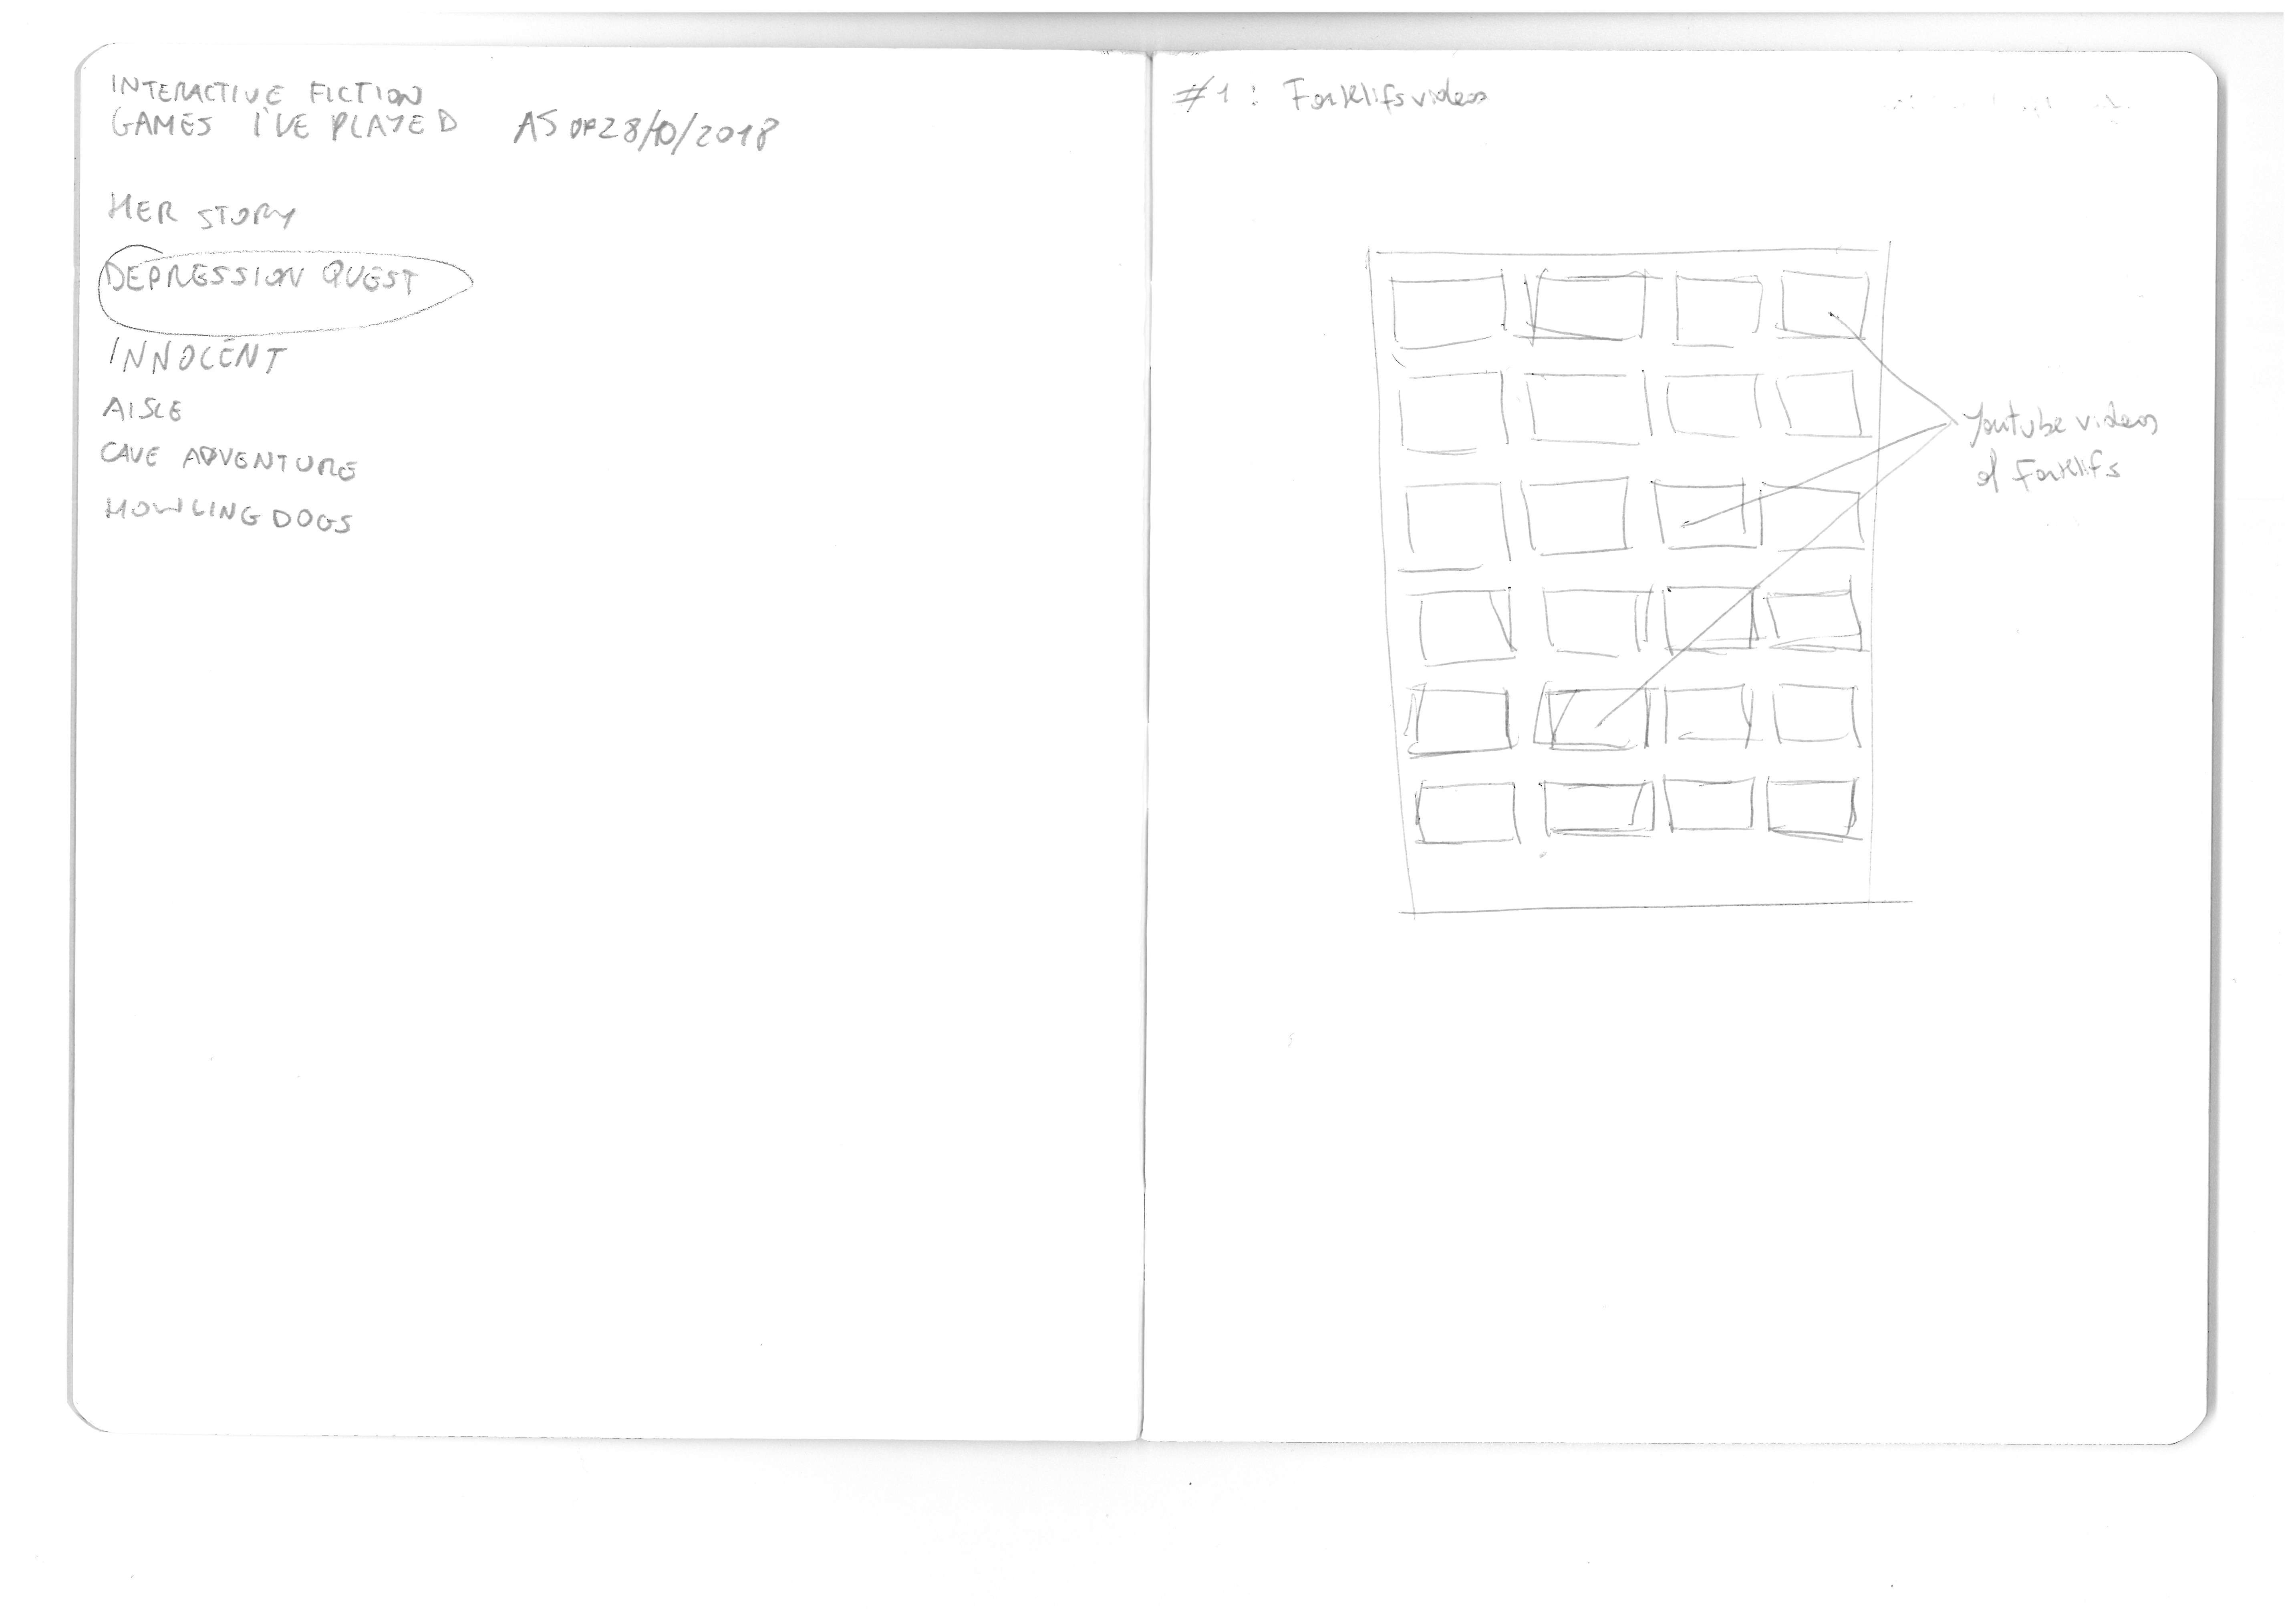 INTERACTIVE FICTION
GAMES I'VE PLAYED AS OF 28/10/2018
HER STORY
DEPRESSION QUEST
INNOCENT
AISLE
CAVE ADVENTURE
HOWLING DOGS
#1: Forklifs videos
Youtube videos
of Forklifs